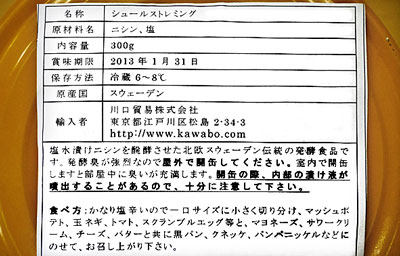 名称 シュールストレミング
原材料名 ニシン、塩
内容量 300g
賞味期限 2013年1月31日
保存方法 冷蔵6~8℃
原産国 スウェーデン
輸入者 川口貿易株式会社
東京都江戸川区松島2-34-3
http://www.kawabo.com
塩水漬けニシンを醗酵させた北欧スウェーデン伝統の発酵食品で
す。発酵臭が強烈なので屋外で開缶してください。室内で開缶
しますと部屋中に臭いが充満します。開缶の際、内部の漬け液が
噴出することがあるので、十分に注意して下さい。
食べ方:かなり塩辛いので一口サイズに小さく切り分け、マッシュポ
テト、玉ネギ、トマト、スクランブルエッグ等と、マヨネーズ、サワークリ
ーム、チーズ、バターと共に黒パン、クネッケ、パンペニッケルなどに
のせて、お召し上がり下さい。